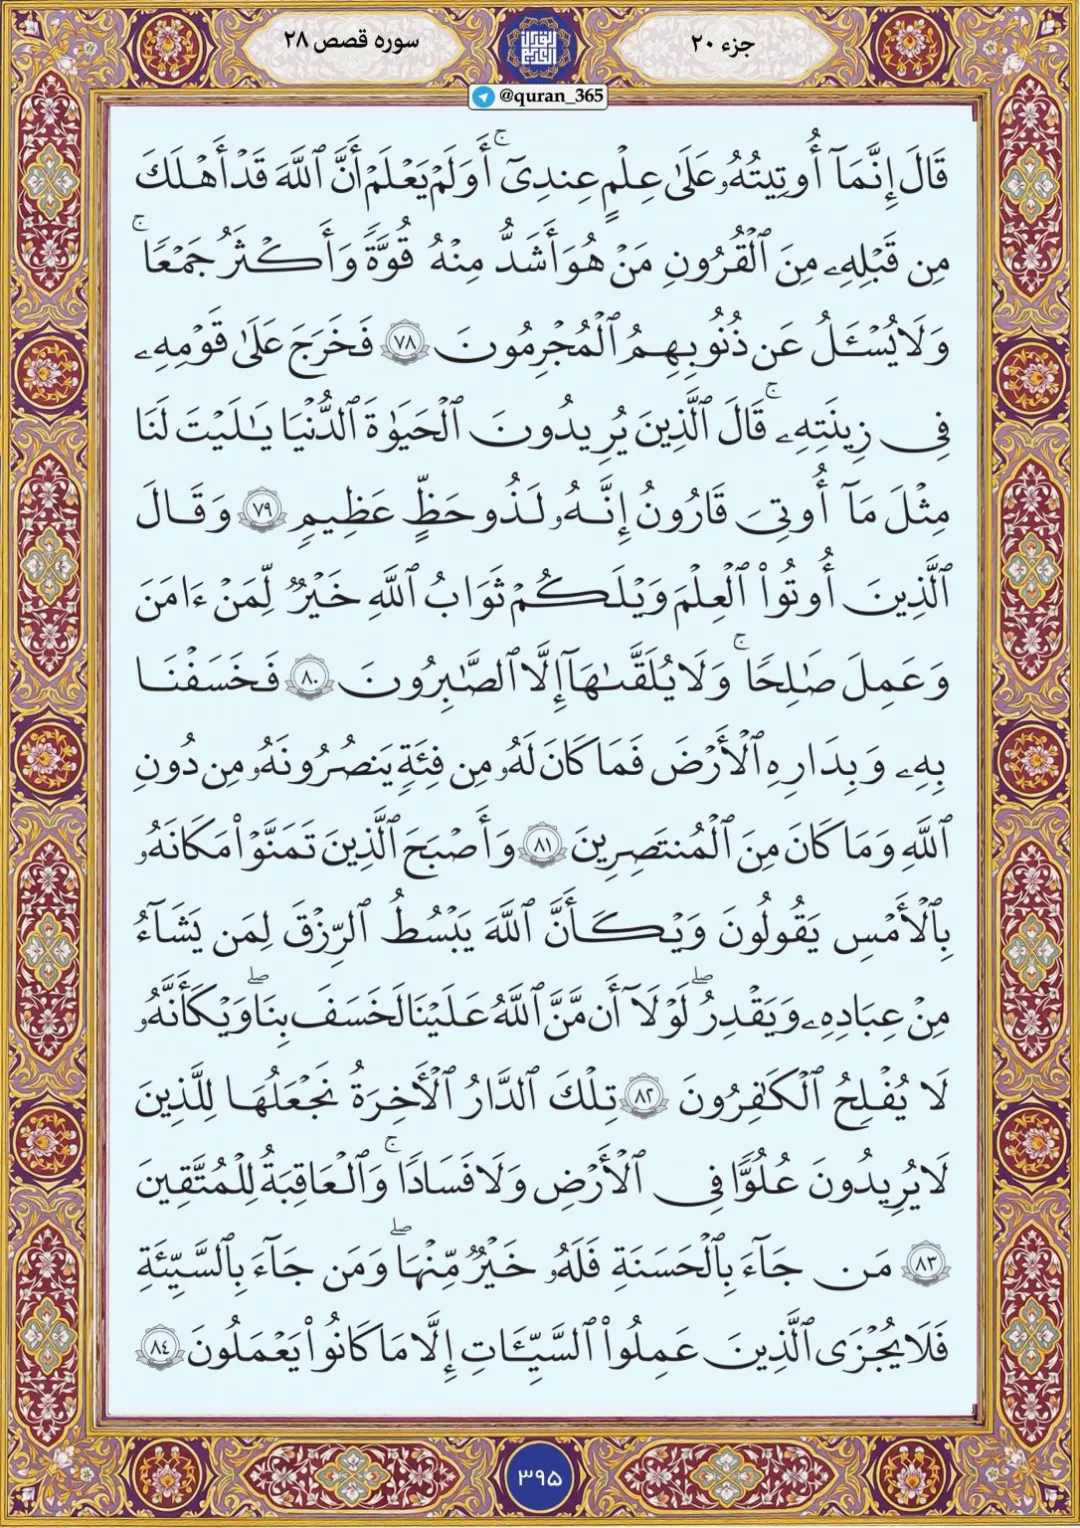 جزء ۲۰
القرآن الكريم
سوره قصص ۲۸
@quran_365
قَالَ إِنَّمَآ أُوتِيتُهُۥ عَلَىٰ عِلْمٍ عِندِىٓ ۚ أَوَلَمْ يَعْلَمْ أَنَّ ٱللَّهَ قَدْ أَهْلَكَ
مِن قَبْلِهِۦ مِنَ ٱلْقُرُونِ مَنْ هُوَ أَشَدُّ مِنْهُ قُوَّةً وَأَكْثَرُ جَمْعًا ۚ
وَلَا يُسْـَٔلُ عَن ذُنُوبِهِمُ ٱلْمُجْرِمُونَ ﴿٧٨﴾ فَخَرَجَ عَلَىٰ قَوْمِهِۦ
فِى زِينَتِهِۦ ۖ قَالَ ٱلَّذِينَ يُرِيدُونَ ٱلْحَيَوٰةَ ٱلدُّنْيَا يَـٰلَيْتَ لَنَا
مِثْلَ مَآ أُوتِىَ قَـٰرُونُ إِنَّهُۥ لَذُو حَظٍّ عَظِيمٍ ﴿٧٩﴾ وَقَالَ
ٱلَّذِينَ أُوتُوا۟ ٱلْعِلْمَ وَيْلَكُمْ ثَوَابُ ٱللَّهِ خَيْرٌ لِّمَنْ ءَامَنَ
وَعَمِلَ صَـٰلِحًا ۚ وَلَا يُلَقَّىٰهَآ إِلَّا ٱلصَّـٰبِرُونَ ﴿٨٠﴾ فَخَسَفْنَا
بِهِۦ وَبِدَارِهِ ٱلْأَرْضَ فَمَا كَانَ لَهُۥ مِن فِئَةٍ يَنصُرُونَهُۥ مِن دُونِ
ٱللَّهِ وَمَا كَانَ مِنَ ٱلْمُنتَصِرِينَ ﴿٨١﴾ وَأَصْبَحَ ٱلَّذِينَ تَمَنَّوْا۟ مَكَانَهُۥ
بِٱلْأَمْسِ يَقُولُونَ وَيْكَأَنَّ ٱللَّهَ يَبْسُطُ ٱلرِّزْقَ لِمَن يَشَآءُ
مِنْ عِبَادِهِۦ وَيَقْدِرُ ۖ لَوْلَآ أَن مَّنَّ ٱللَّهُ عَلَيْنَا لَخَسَفَ بِنَا ۖ وَيْكَأَنَّهُۥ
لَا يُفْلِحُ ٱلْكَـٰفِرُونَ ﴿٨٢﴾ تِلْكَ ٱلدَّارُ ٱلْـَٔاخِرَةُ نَجْعَلُهَا لِلَّذِينَ
لَا يُرِيدُونَ عُلُوًّا فِى ٱلْأَرْضِ وَلَا فَسَادًا ۚ وَٱلْعَـٰقِبَةُ لِلْمُتَّقِينَ
﴿٨٣﴾ مَن جَآءَ بِٱلْحَسَنَةِ فَلَهُۥ خَيْرٌ مِّنْهَا ۖ وَمَن جَآءَ بِٱلسَّيِّئَةِ
فَلَا يُجْزَى ٱلَّذِينَ عَمِلُوا۟ ٱلسَّيِّـَٔاتِ إِلَّا مَا كَانُوا۟ يَعْمَلُونَ ﴿٨٤﴾
۳۹۵